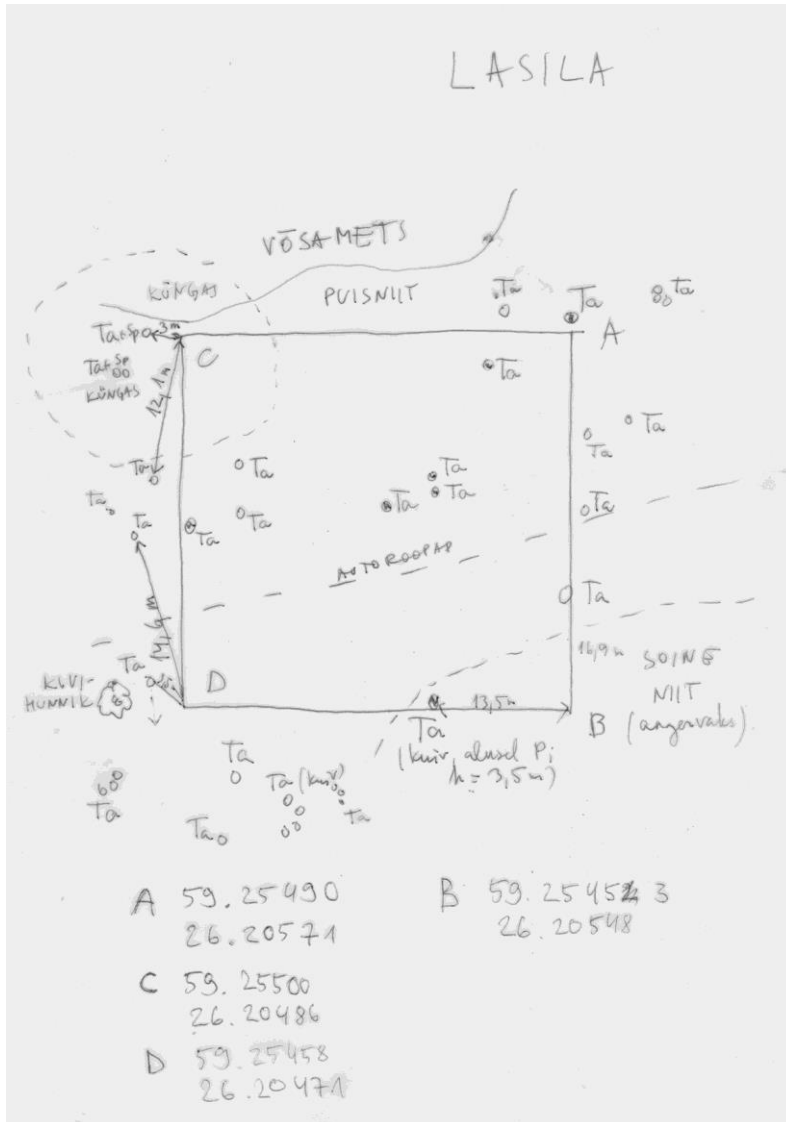 LASILA
VÕSAMETS
KÜNGAS
PUISNIIT
Ta
Ta
Ta
Ta+Sp
3m
C
A
Ta+Sp
KÜNGAS
Ta
12,1m
Ta
Ta
Ta
Ta
Ta
Ta
Ta
Ta
Ta
Ta
Ta
Ta
Ta
AUTOROOPAD
Ta
14,4m
16,9m
SOINE
NIIT
(angervaks)
Ta
KIVI-
HUNNIK
D
13,5m
B
Ta
(kuiv, alusel Pi
h = 3,5m)
Ta
Ta (kuiv)
Ta
Ta
Ta
A 59.25490
26.20571
B 59.2545 3
26.20548
C 59.25500
26.20486
D 59.25458
26.20471